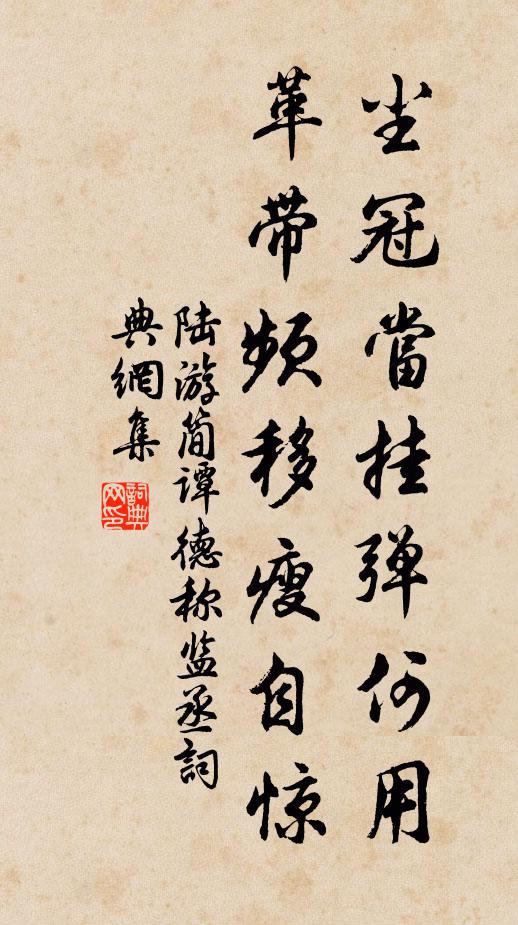 尘冠當挂弹何用
革带频移瘦自惊
陆游简谭德称监丞詞
典網集
詞典
网印